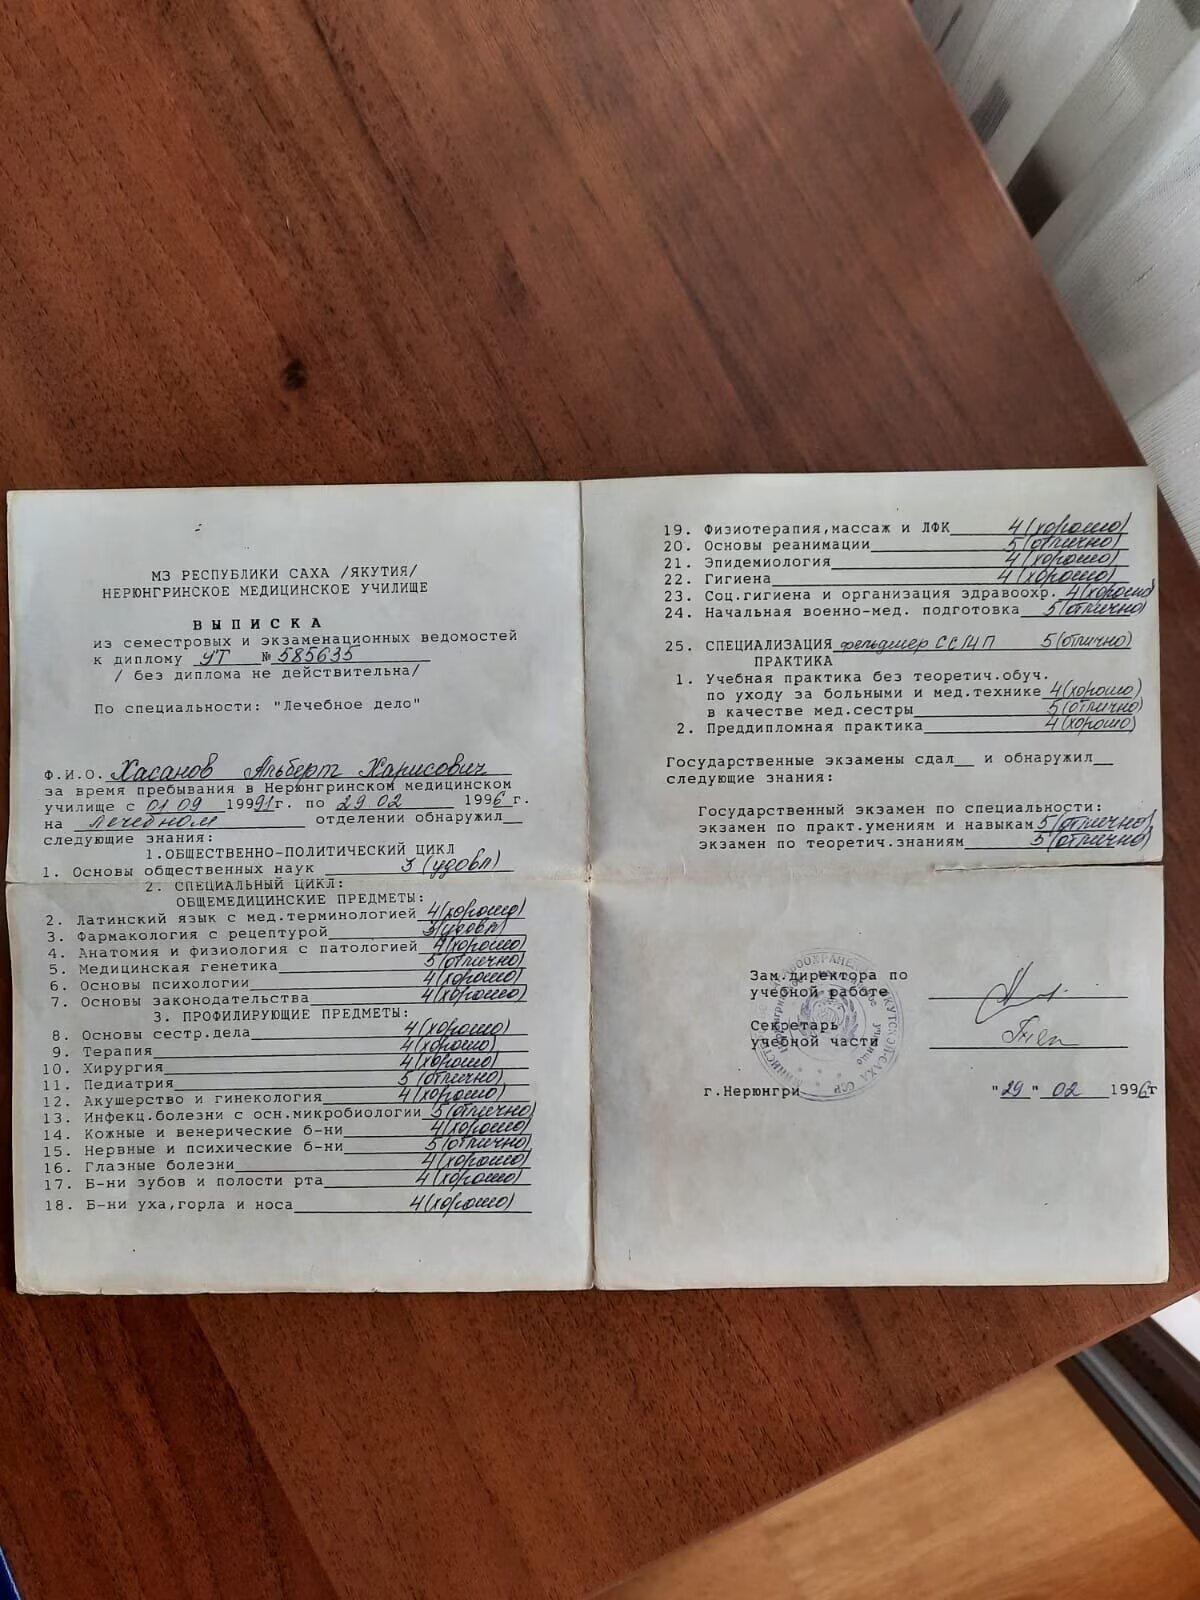 МЗ РЕСПУБЛИКИ САХА /ЯКУТИЯ/
НЕРЮНГРИНСКОЕ МЕДИЦИНСКОЕ УЧИЛИЩЕ
ВЫПИСКА
из семестровых и экзаменационных ведомостей
к диплому УТ № 585635
/ без диплома не действительна/
По специальности: "Лечебное дело"
Ф.И.О. Хасанов Альберт Харисович
за время пребывания в Нерюнгринском медицинском
училище с 01 09 19991г. по 29.02 1996 г.
на лечебном отделении обнаружил__
следующие знания:
1.ОБЩЕСТВЕННО-ПОЛИТИЧЕСКИЙ ЦИКЛ
1. Основы общественных наук 3 (удовл)
2. СПЕЦИАЛЬНЫЙ ЦИКЛ:
ОБЩЕМЕДИЦИНСКИЕ ПРЕДМЕТЫ:
2. Латинский язык с мед.терминологией 4(хорошо)
3. Фармакология с рецептурой 3(удовл)
4. Анатомия и физиология с патологией 4(хорошо)
5. Медицинская генетика 5(отлично)
6. Основы психологии 4(хорошо)
7. Основы законодательства 4(хорошо)
3. ПРОФИЛИРУЮЩИЕ ПРЕДМЕТЫ:
8. Основы сестр.дела 4(хорошо)
9. Терапия 4(хорошо)
10. Хирургия 4(хорошо)
11. Педиатрия 5(отлично)
12. Акушерство и гинекология 4(хорошо)
13. Инфекц.болезни с осн.микробиологии 5(отлично)
14. Кожные и венерические б-ни 4(хорошо)
15. Нервные и психические б-ни 5(отлично)
16. Глазные болезни 4(хорошо)
17. Б-ни зубов и полости рта 4(хорошо)
18. Б-ни уха,горла и носа 4(хорошо)
19. Физиотерапия,массаж и ЛФК 4(хорошо)
20. Основы реанимации 5(отлично)
21. Эпидемиология 4(хорошо)
22. Гигиена 4(хорошо)
23. Соц.гигиена и организация здравоохр. 4(хорошо)
24. Начальная военно-мед. подготовка 5(отлично)
25. СПЕЦИАЛИЗАЦИЯ фельдшер ССМП 5(отлично)
ПРАКТИКА
1. Учебная практика без теоретич.обуч.
по уходу за больными и мед.технике 4(хорошо)
в качестве мед.сестры 5(отлично)
2. Преддипломная практика 4(хорошо)
Государственные экзамены сдал__ и обнаружил__
следующие знания:
Государственный экзамен по специальности:
экзамен по практ.умениям и навыкам 5(отлично)
экзамен по теоретич.знаниям 5(отлично)
Зам.директора по
учебной работе
Секретарь
учебной части
г.Нерюнгри "29" 02 1996г